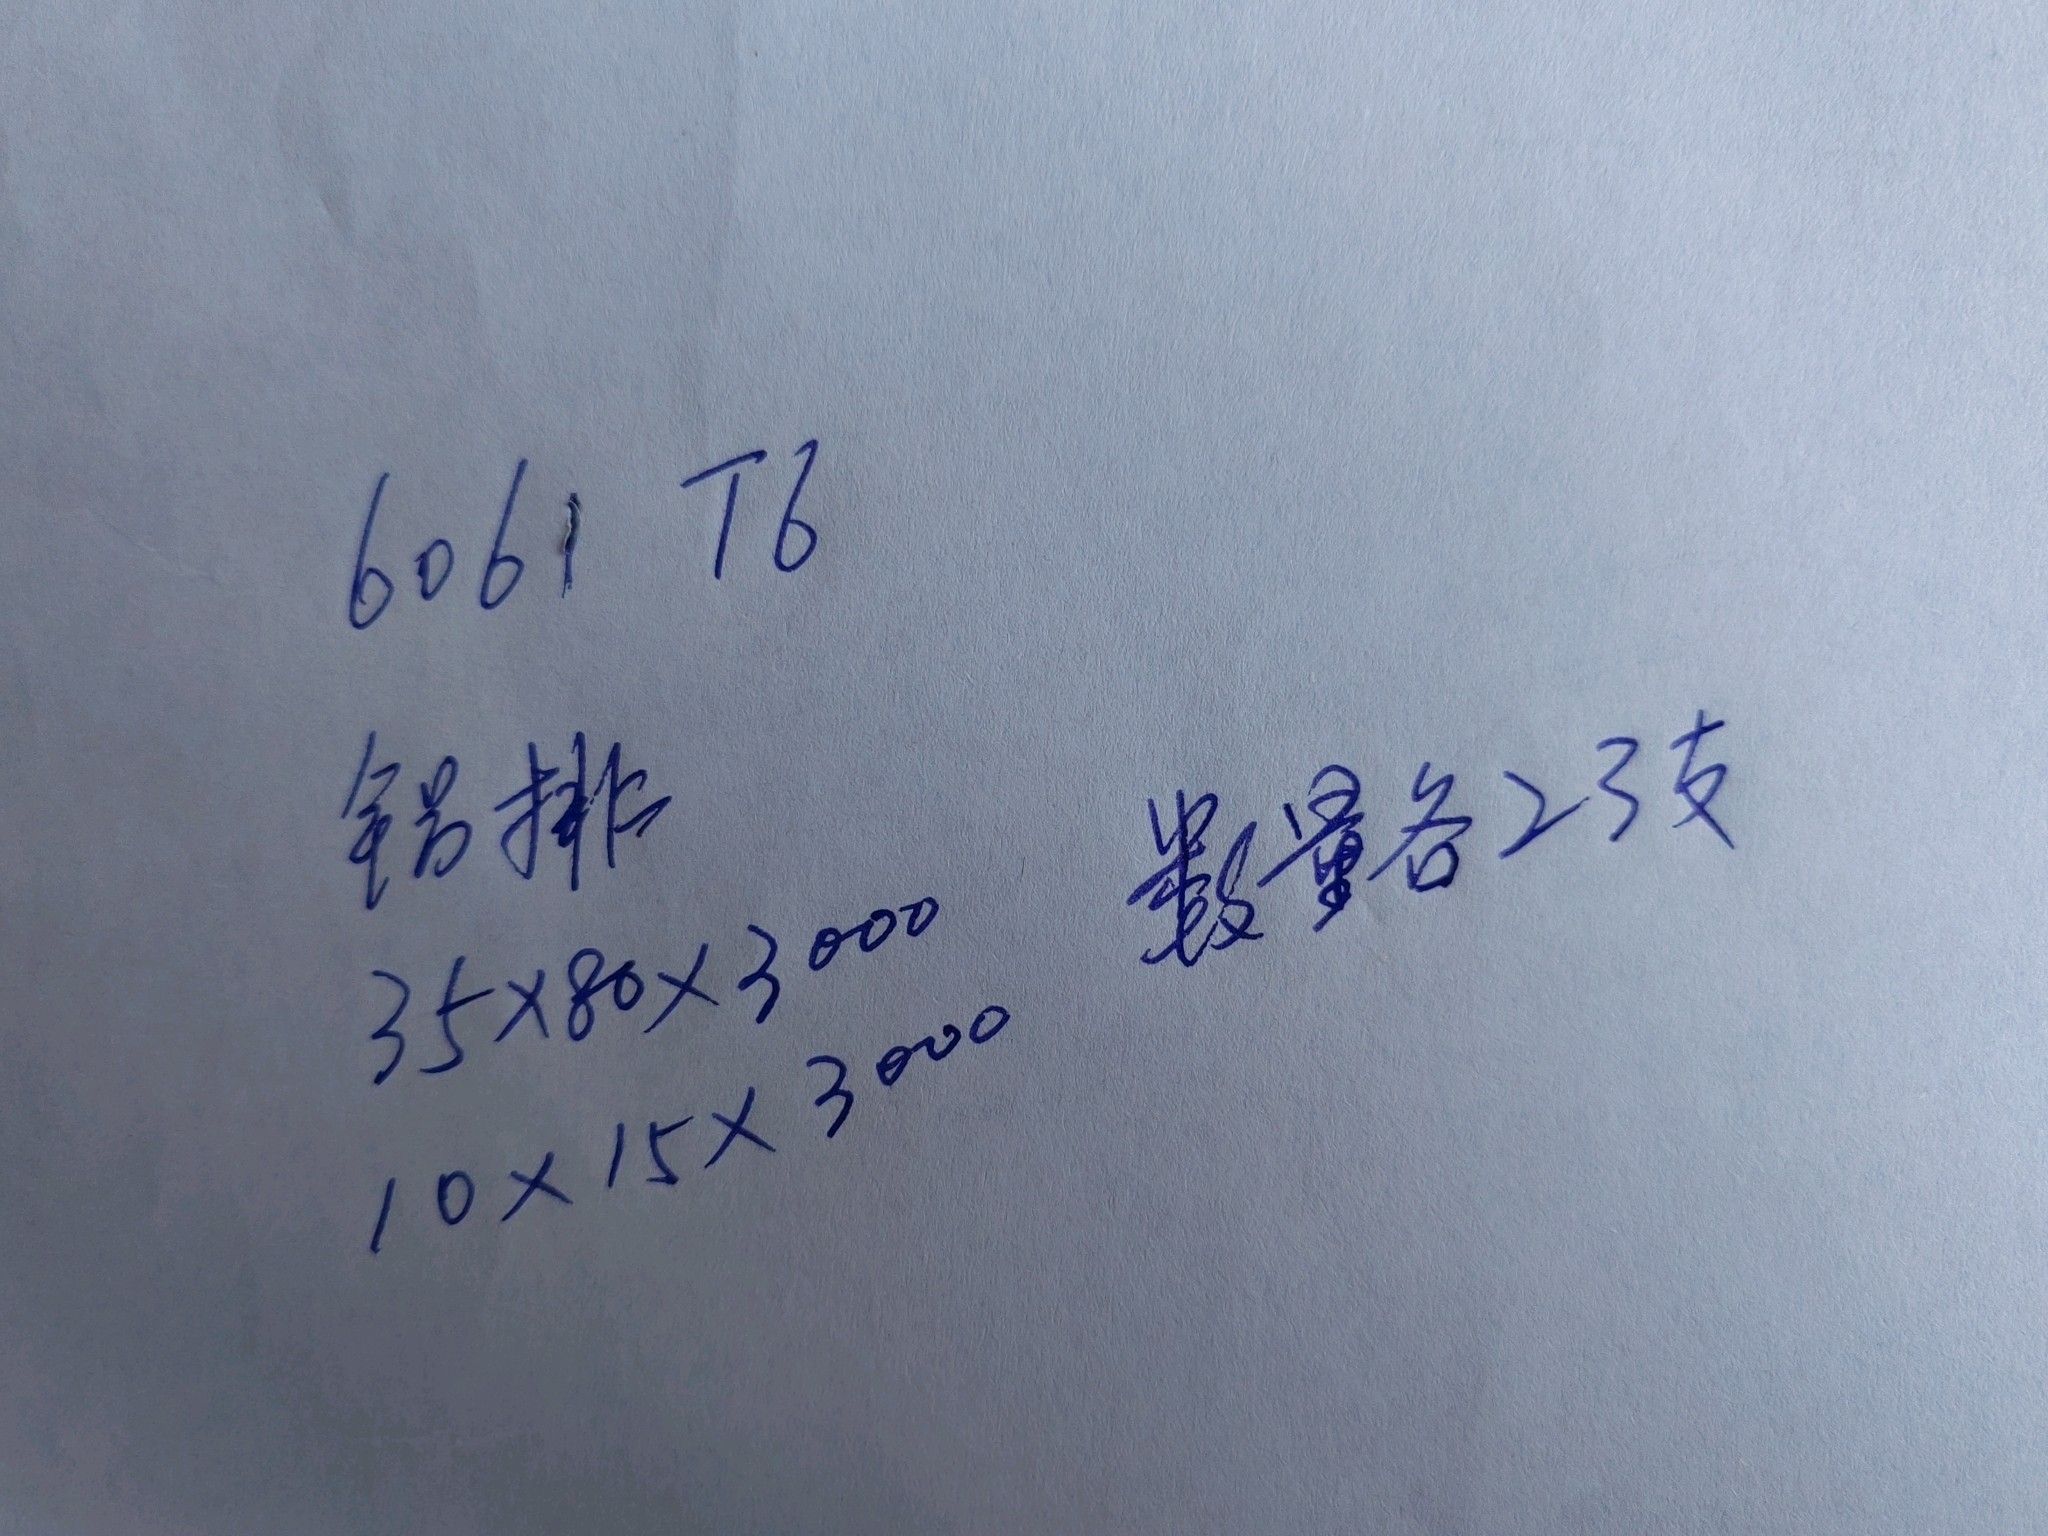 6061 T6
铝排
数量各23支
35×80×3000
10×15×3000